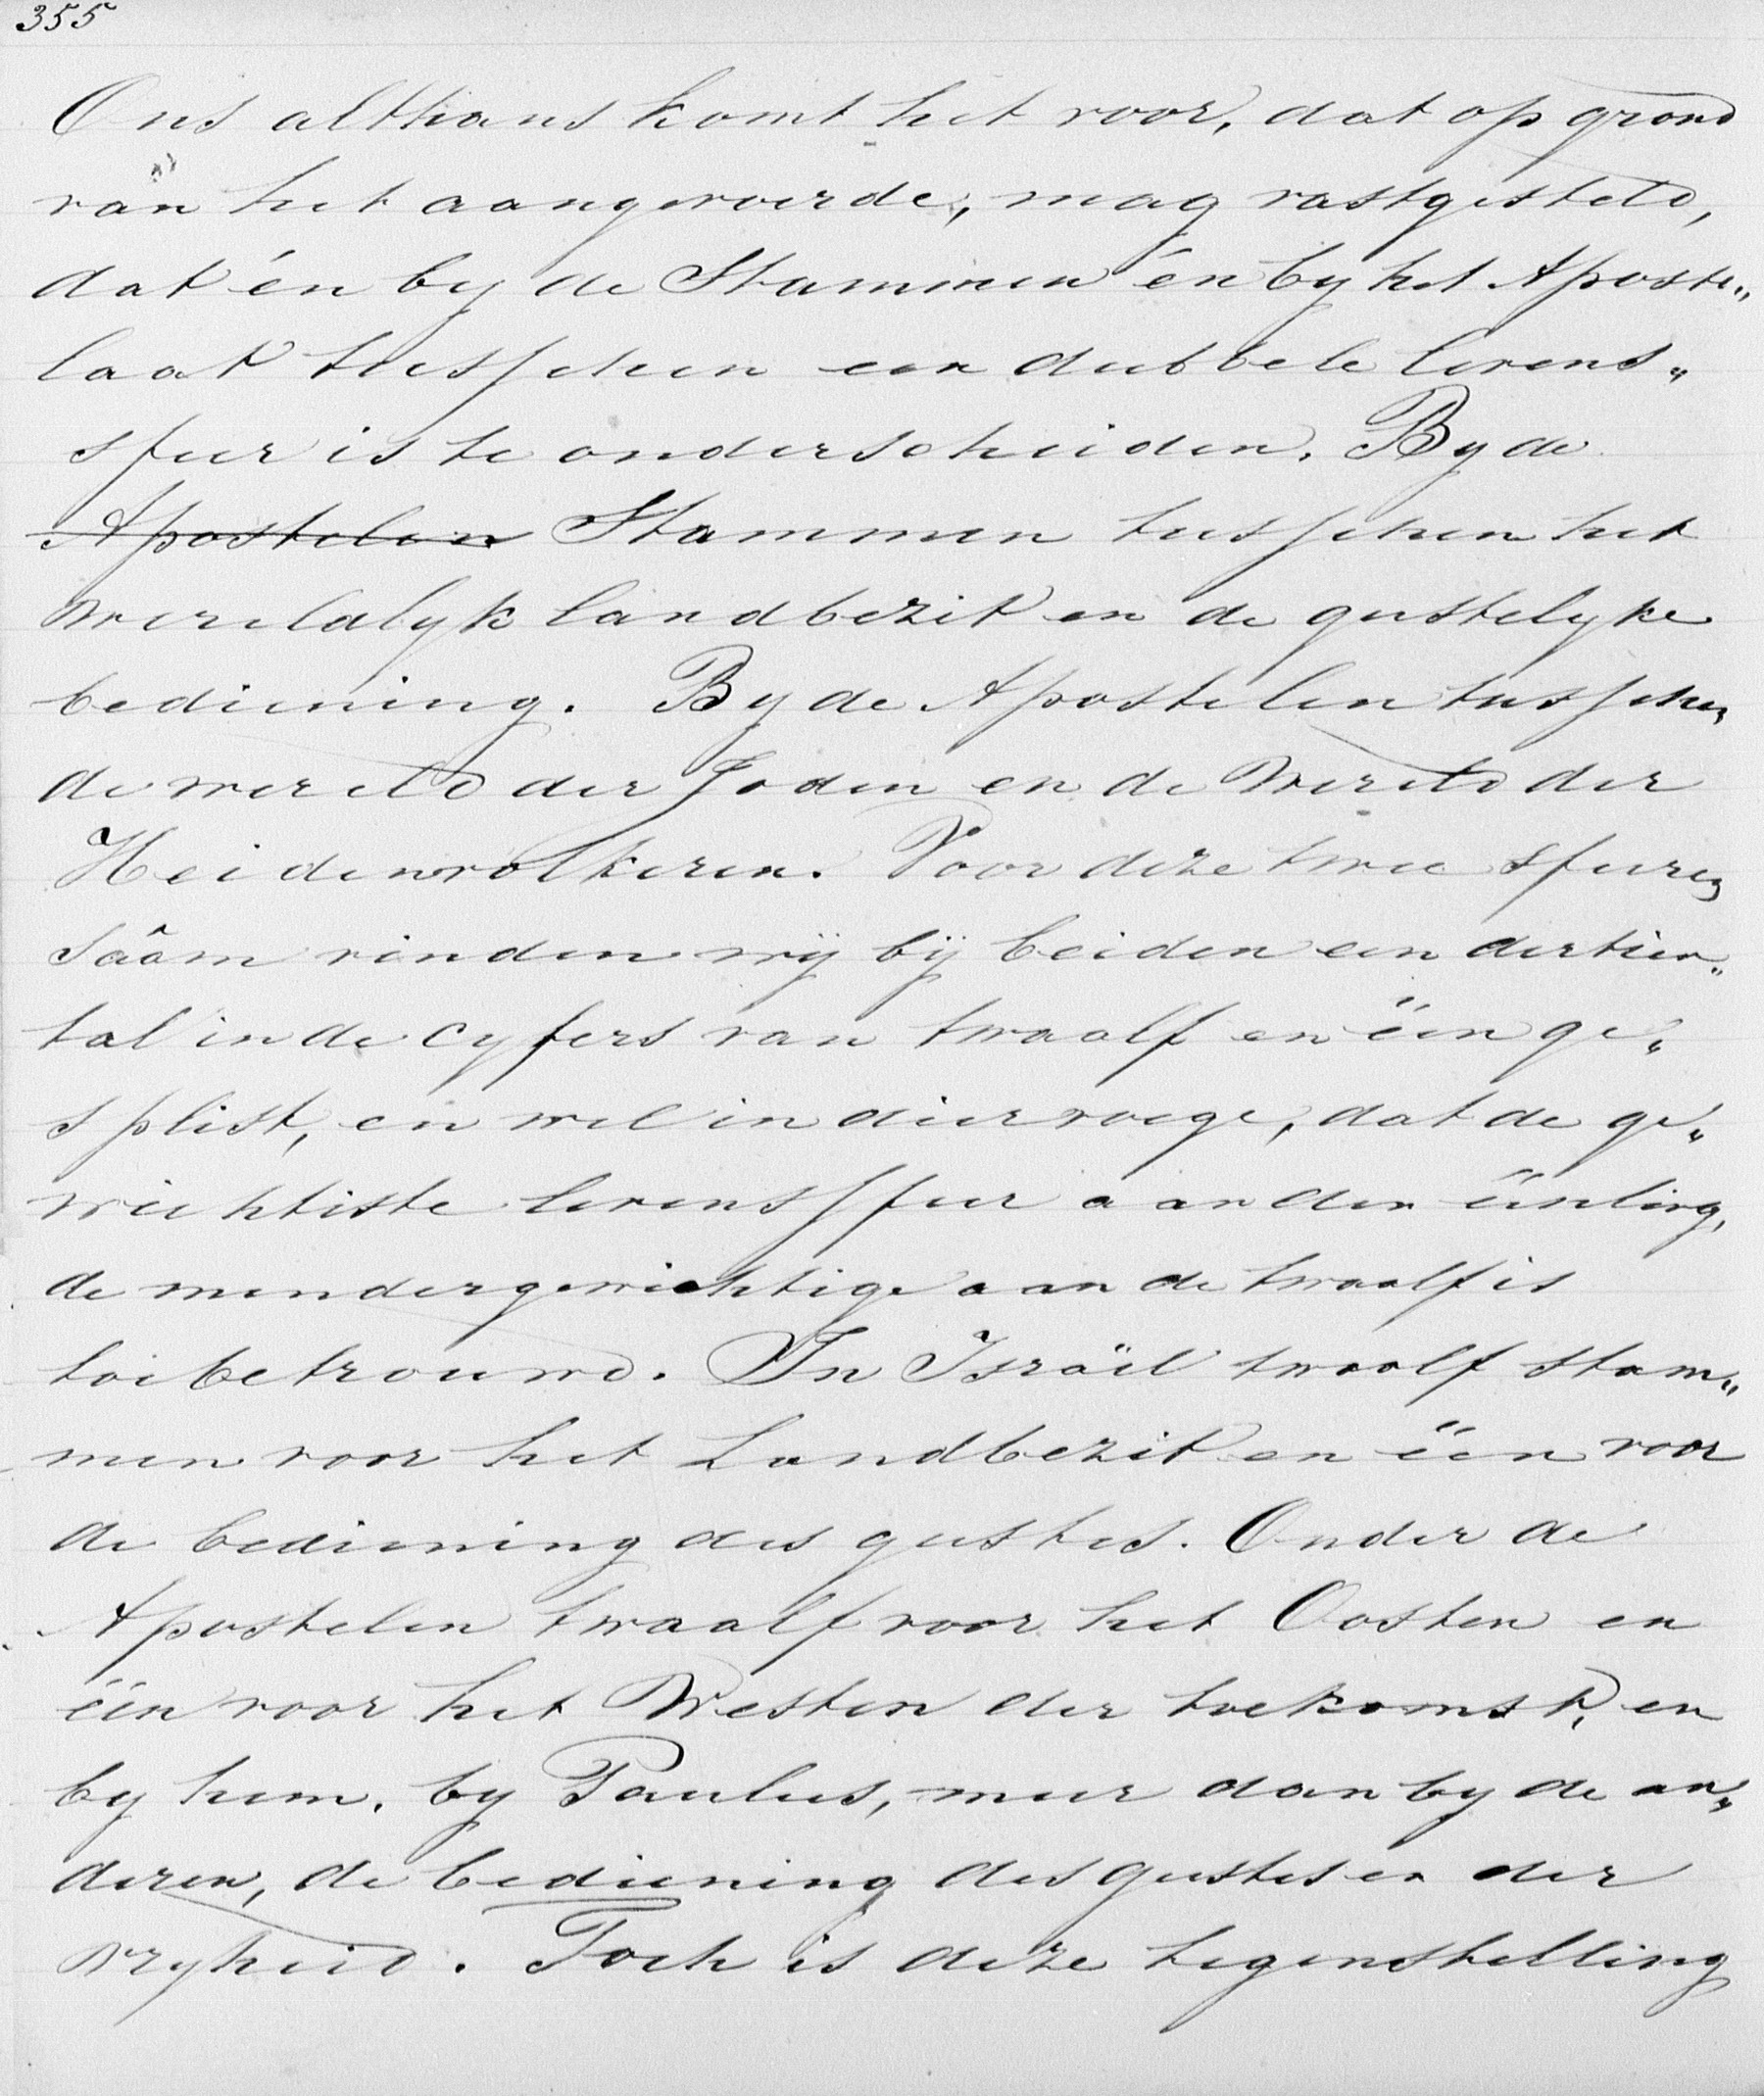 355
Ons althans komt het voor, dat op grond
van het aangevoerde, mag vastgesteld,
dat én by de Stammen én by het Aposte„
laat tusschen een dubbele levens„
sfeer is te onderscheiden. By de
Apostelen Stammen tusschen het
wereldlyk landbezit en de geestelyke
bediening. By de Apostelen tusschen
de wereld der Joden en de wereld der
Heidenvolkeren. Voor deze twee sferen
saâm vinden wij bij beiden een dertien„
tal in de cyfers van twaalf en één ge„
splist, en wel in diervoege, dat de ge„
wichtiste levenssfeer aan den éénling,
de mindergewichtige aan de twaalf is
toebetrouwd. In Israël twaalf stam„
men voor het Landbezit en één voor
de bediening des geestes. Onder de
Apostelen twaalf voor het Oosten en
één voor het Westen der toekomst, en
by hem, by Paulus, meer dan by de an„
deren, de bediening des geestes en der
vryheid. Toch is deze tegenstelling